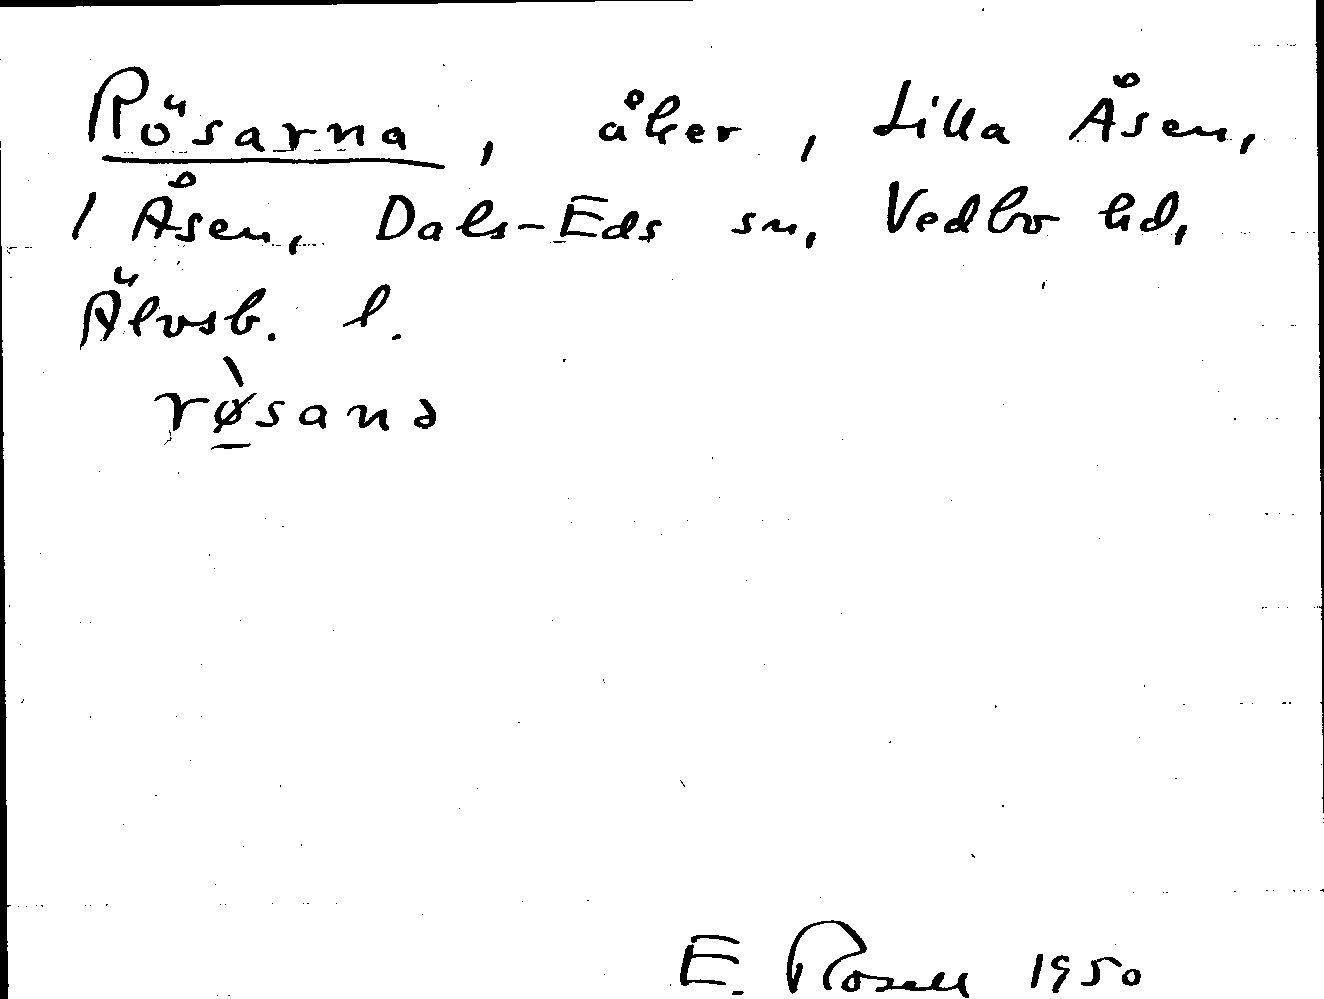 Rösarna, åker, Lilla Åsen,
1 Åsen, Dals-Eds sn, Vedbo hd,
Älvsb. l.
rø̠̀sanə
E. Rosell 1950